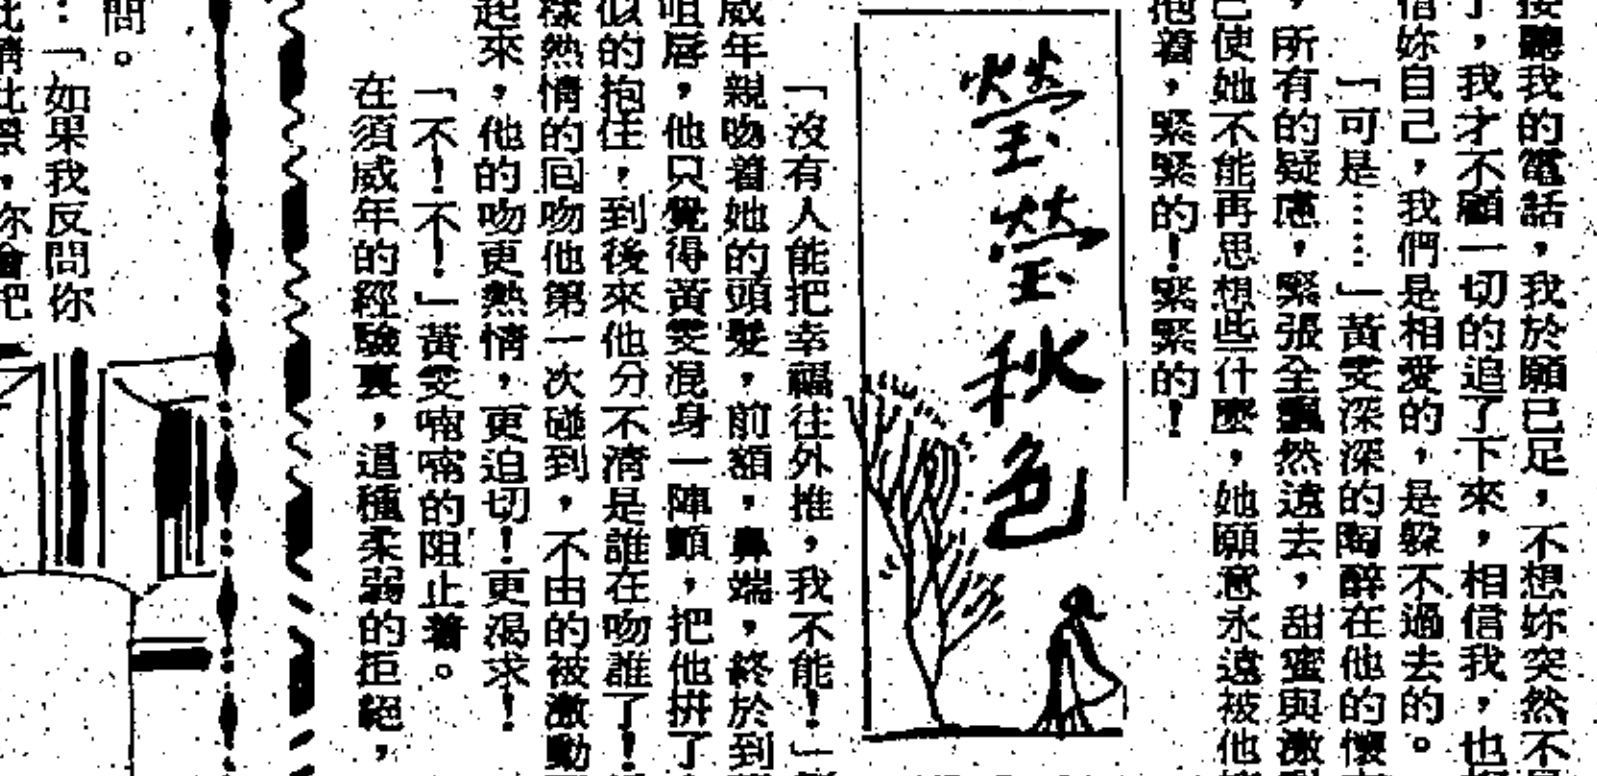 接聽我的電話，我於願已足，不想妳突然不
了，我才不顧一切的追了下來，相信我，也
信妳自己，我們是相愛的，是躲不過去的。
「可是……」黃雯深深的陶醉在他的懷
，所有的疑慮，緊張全飄然遠去，甜蜜與激
已使她不能再思想些什麼，她願意永遠被他
抱着，緊緊的！緊緊的！
瑩瑩秋色
「沒有人能把幸福往外推，我不能！」
威年親吻着她的頭髮，前額，鼻端，終於到
咀唇，他只覺得黃雯混身一陣顫，把他拼了
似的抱住，到後來他分不清是誰在吻誰了！
樣熱情的囘吻他第一次碰到，不由的被激動
起來，他的吻更熱情，更迫切！更渴求！
「不！不！」黃雯喃喃的阻止着。
在須威年的經驗裏，這種柔弱的拒絕，
問。
：「如果我反問你
此情此景，你會把